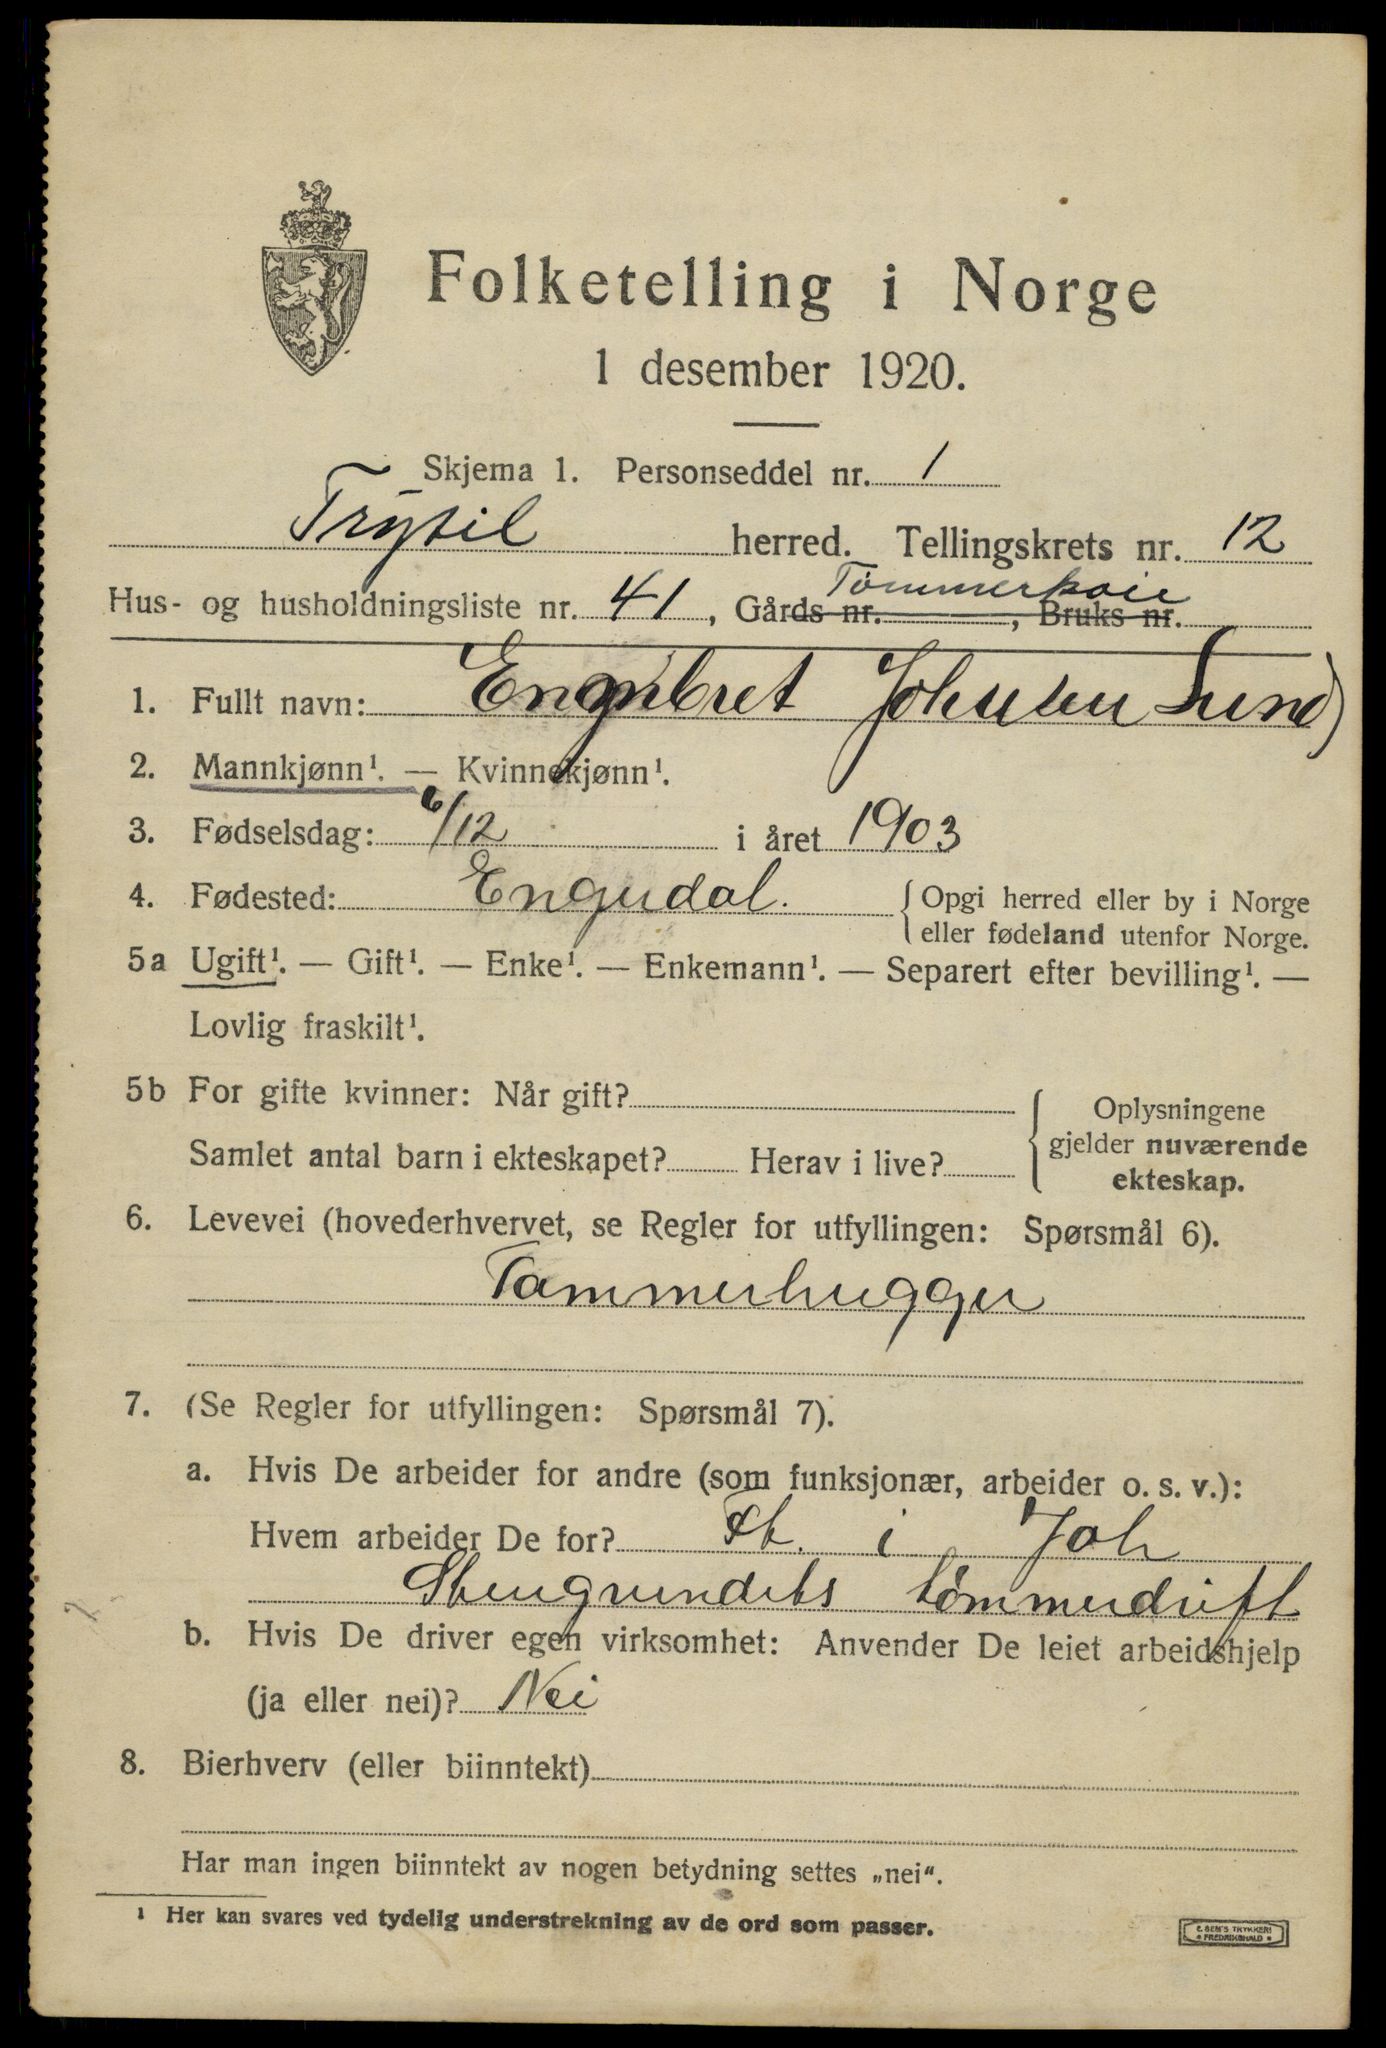 Folketelling i Norge
1 desember 1920.
Skjema 1. Personseddel nr. 1
Trysil herred. Tellingskrets nr. 12
Tømmerkoie
Hus- og husholdningsliste nr. 41, Gårds nr. , Bruks nr.
1. Fullt navn: Engebret Johnsen Lund
2. Mannkjønn¹. — Kvinnekjønn¹.
3. Fødselsdag: 6/12 i året 1903
4. Fødested: Engerdal. Opgi herred eller by i Norge
eller fødeland utenfor Norge.
5a Ugift¹. — Gift¹. — Enke¹. — Enkemann¹. — Separert efter bevilling¹. —
Lovlig fraskilt¹.
5b For gifte kvinner: Når gift? Oplysningene
gjelder nuværende
Samlet antal barn i ekteskapet? Herav i live?
ekteskap.
6. Levevei (hovederhvervet, se Regler for utfyllingen: Spørsmål 6).
Tømmerhugger
7. (Se Regler for utfyllingen: Spørsmål 7).
a. Hvis De arbeider for andre (som funksjonær, arbeider o. s. v.):
Hvem arbeider De for? i Joh
Stengrundets tømmerdrift
b. Hvis De driver egen virksomhet: Anvender De leiet arbeidshjelp
(ja eller nei)? Nei
8. Bierhverv (eller biinntekt)
Har man ingen biinntekt av nogen betydning settes „nei“.
¹ Her kan svares ved tydelig understrekning av de ord som passer.
E. SEM'S TRYKKERI
* FREDRIKSHALD *